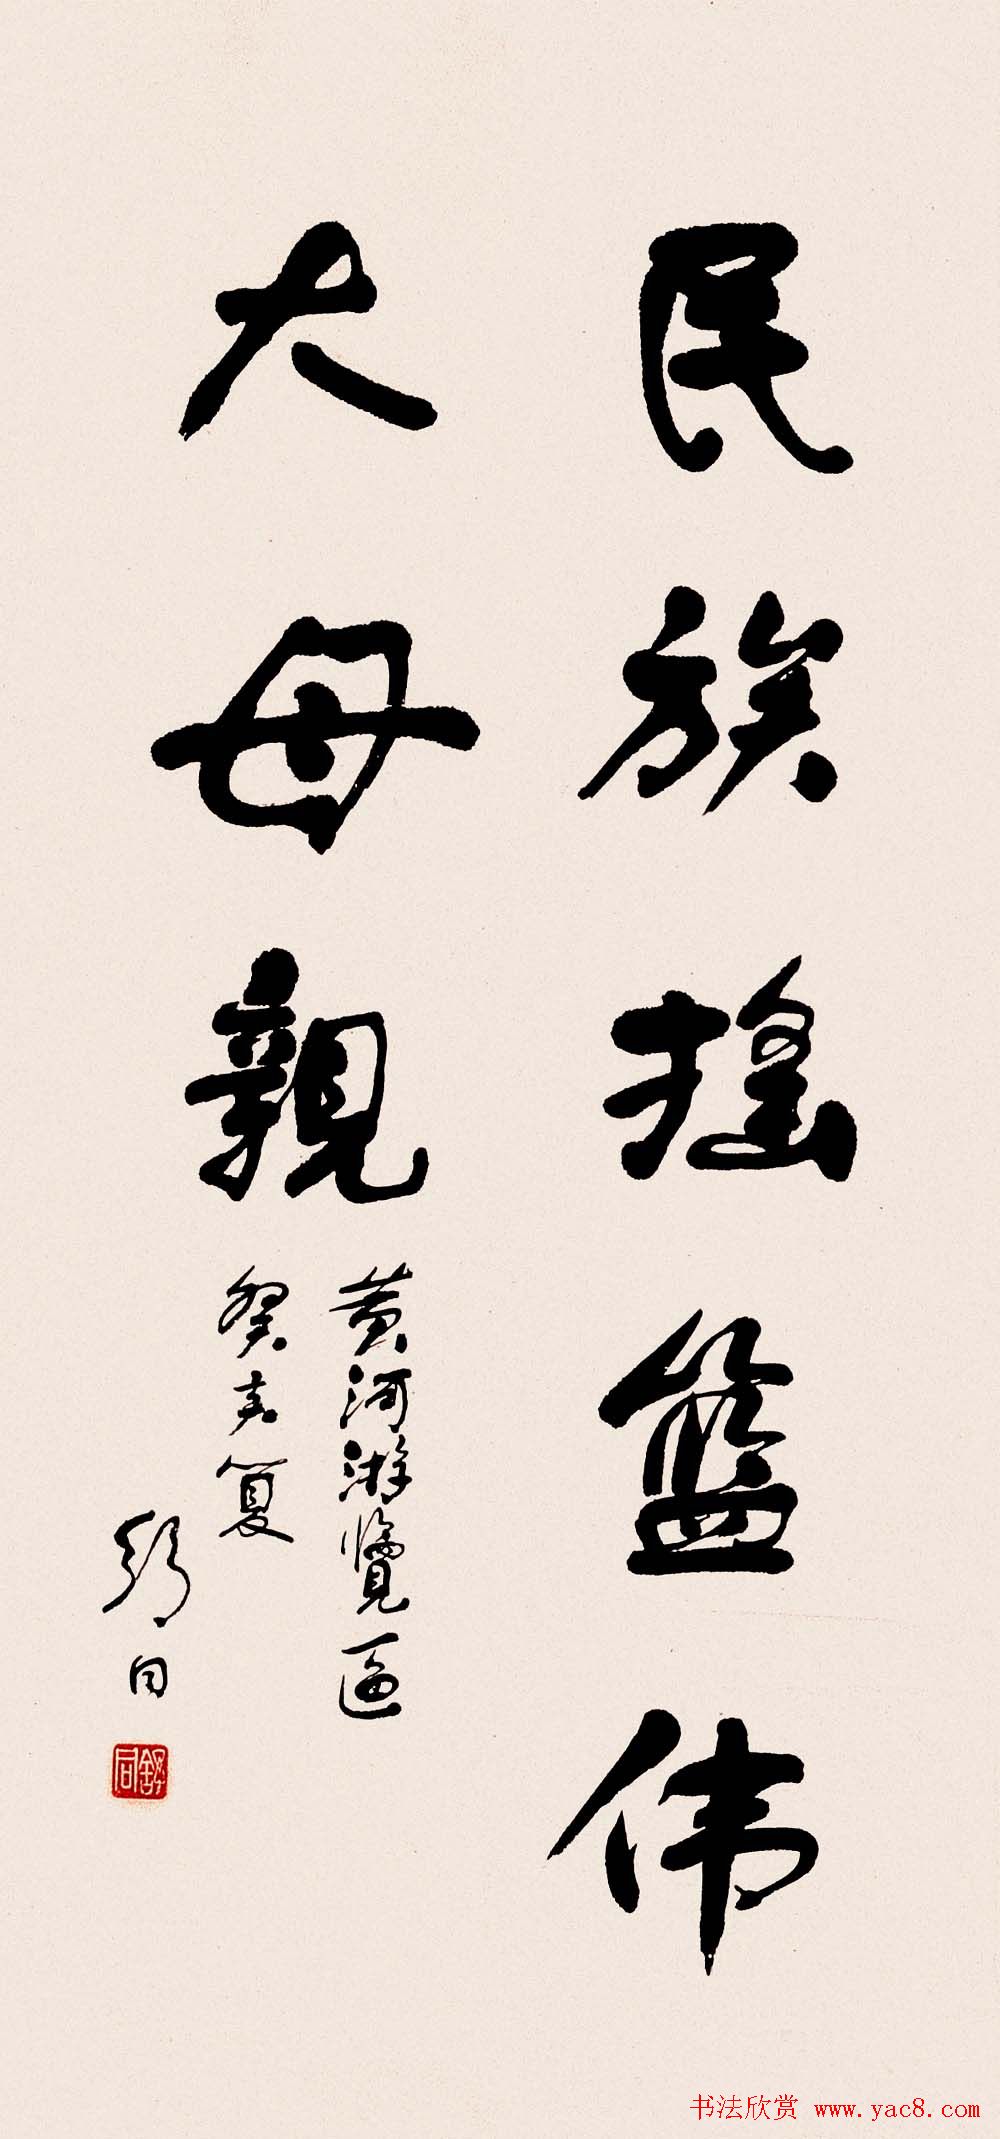 民族摇籃伟
大母親
黄河游覽區
癸亥夏
舒同
舒同
书法欣赏 www.yac8.com